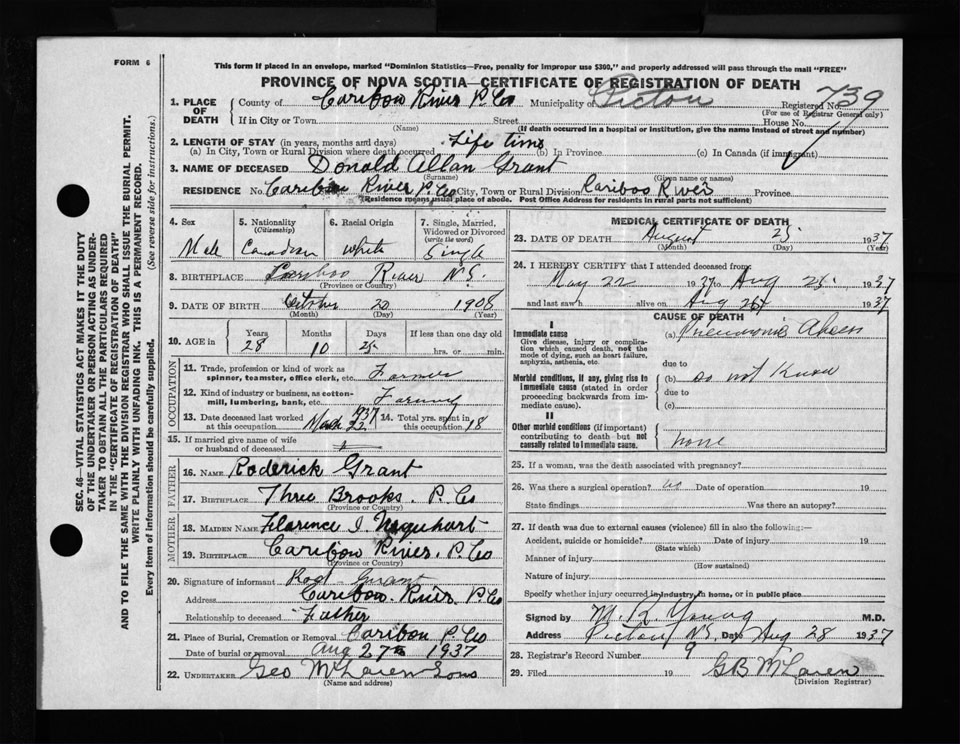 FORM 6
This form if placed in an envelope, marked "Dominion Statistics—Free, penalty for improper use $300," and properly addressed will pass through the mail "FREE"
PROVINCE OF NOVA SCOTIA—CERTIFICATE OF REGISTRATION OF DEATH
SEC. 46—VITAL STATISTICS ACT MAKES IT THE DUTY
OF THE UNDERTAKER OR PERSON ACTING AS UNDER-
TAKER TO OBTAIN ALL THE PARTICULARS REQUIRED
IN THE "CERTIFICATE OF REGISTRATION OF DEATH"
AND TO FILE THE SAME WITH THE DIVISION REGISTRAR WHO SHALL ISSUE THE BURIAL PERMIT.
WRITE PLAINLY WITH UNFADING INK. THIS IS A PERMANENT RECORD.
Every item of information should be carefully supplied. (See reverse side for instructions.)
1. PLACE OF DEATH
County of Caribou River P. Co Municipality of Pictou Registered No. 739
(For use of Registrar General only)
If in City or Town Street House No.
(Name) (If death occurred in a hospital or institution, give the name instead of street and number)
2. LENGTH OF STAY (in years, months and days)
(a) In City, Town or Rural Division where death occurred Life time (b) In Province (c) In Canada (if immigrant)
3. NAME OF DECEASED Donald Allan Grant
(Surname) (Given name or names)
RESIDENCE No. Caribou River P. Co City, Town or Rural Division Cariboo River Province
(Residence means usual place of abode. Post Office Address for residents in rural parts not sufficient)
4. Sex 5. Nationality (Citizenship) 6. Racial Origin 7. Single, Married, Widowed or Divorced (write the word)
Male Canadian White Single
8. BIRTHPLACE Cariboo River N.S.
(Province or Country)
9. DATE OF BIRTH October 20 1908
(Month) (Day) (Year)
10. AGE in Years Months Days If less than one day old
28 10 25 hrs. or min.
OCCUPATION
11. Trade, profession or kind of work as
spinner, teamster, office clerk, etc. Farmer
12. Kind of industry or business, as cotton-
mill, lumbering, bank, etc. Farming
13. Date deceased last worked at this occupation 1937 March 22 14. Total yrs. spent in this occupation 18
15. If married give name of wife
or husband of deceased
FATHER
16. NAME Roderick Grant
17. BIRTHPLACE Three Brooks. P. Co
(Province or Country)
MOTHER
18. MAIDEN NAME Florence I. Urquhart
19. BIRTHPLACE Caribou River. P. Co
(Province or Country)
20. Signature of informant Rod Grant
Address Caribou. River. P. Co
Relationship to deceased Father
21. Place of Burial, Cremation or Removal Caribou P. Co
Date of burial or removal Aug 27th 1937
22. UNDERTAKER Geo McLaren Sons
(Name and address)
MEDICAL CERTIFICATE OF DEATH
23. DATE OF DEATH August 25 1937
(Month) (Day) (Year)
24. I HEREBY CERTIFY that I attended deceased from
May 22 1937 to Aug 25 1937
and last saw h alive on Aug 1937
CAUSE OF DEATH
I
Immediate cause
Give disease, injury or complica-
tion which caused death, not the
mode of dying, such as heart failure,
asphyxia, asthenia, etc.
(a) Pneumonia
due to
Morbid conditions, if any, giving rise to
immediate cause (stated in order
proceeding backwards from im-
mediate cause).
(b) do not know
due to
(c)
II
Other morbid conditions (if important)
contributing to death but not
causally related to immediate cause.
none
25. If a woman, was the death associated with pregnancy?
26. Was there a surgical operation? no Date of operation 19
State findings Was there an autopsy?
27. If death was due to external causes (violence) fill in also the following:—
Accident, suicide or homicide? Date of injury 19
(State which)
Manner of injury
(How sustained)
Nature of injury
Specify whether injury occurred in industry, in home, or in public place
Signed by M. K. Young M.D.
Address Pictou N.S. Date Aug 28 1937
28. Registrar's Record Number 9
29. Filed 19 G B McLaren
(Division Registrar)